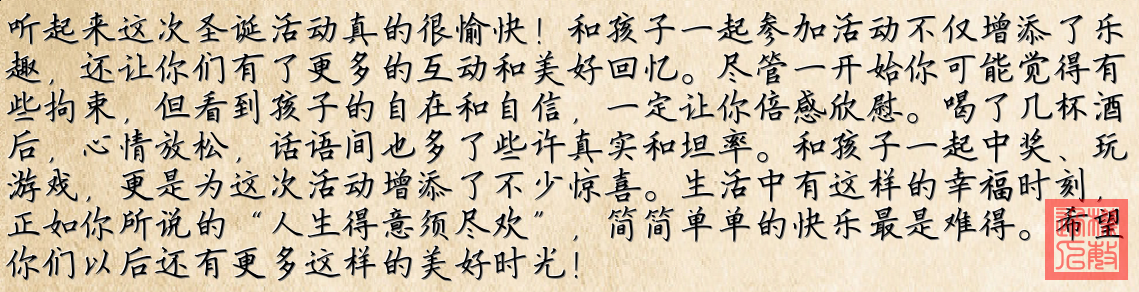 听起来这次圣诞活动真的很愉快！和孩子一起参加活动不仅增添了乐
趣，还让你们有了更多的互动和美好回忆。尽管一开始你可能觉得有
些拘束，但看到孩子的自在和自信，一定让你倍感欣慰。喝了几杯酒
后，心情放松，话语间也多了些许真实和坦率。和孩子一起中奖、玩
游戏，更是为这次活动增添了不少惊喜。生活中有这样的幸福时刻，
正如你所说的“人生得意须尽欢”，简简单单的快乐最是难得。希望
你们以后还有更多这样的美好时光！